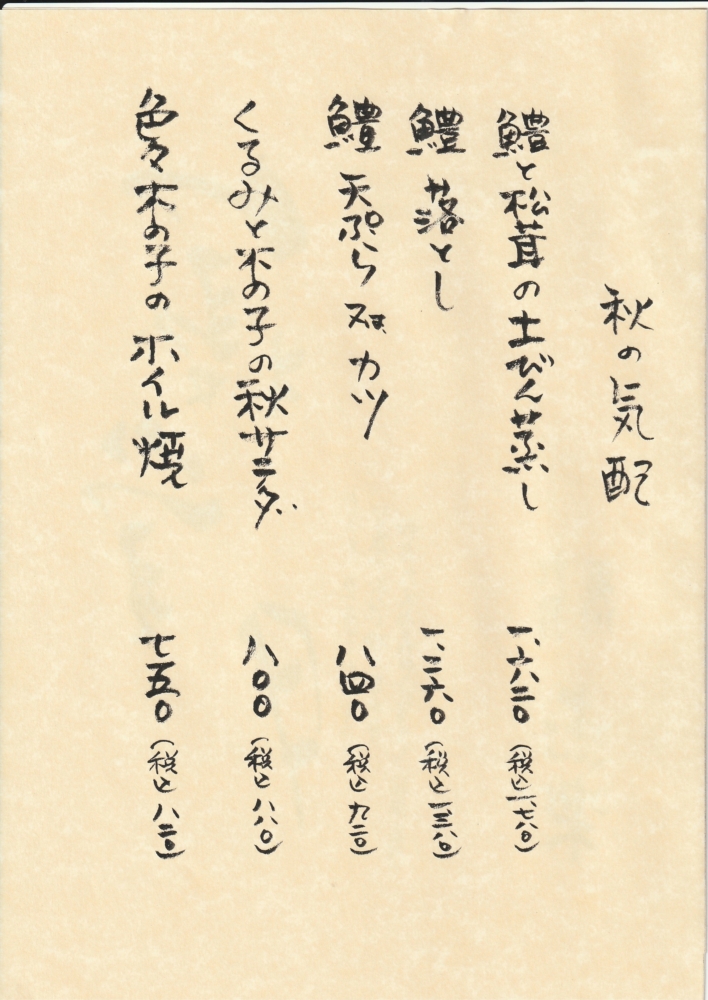 秋の気配
鱧と松茸の土びん蒸し 一、六二〇 (税込一、七八〇)
鱧 落とし 一、二六〇 (税込一、三八〇)
鱧 天ぷら 又は カツ 八四〇 (税込 九二〇)
くるみと木の子の秋サラダ 八〇〇 (税込 八八〇)
色々木の子の ホイル焼 七五〇 (税込 八二〇)